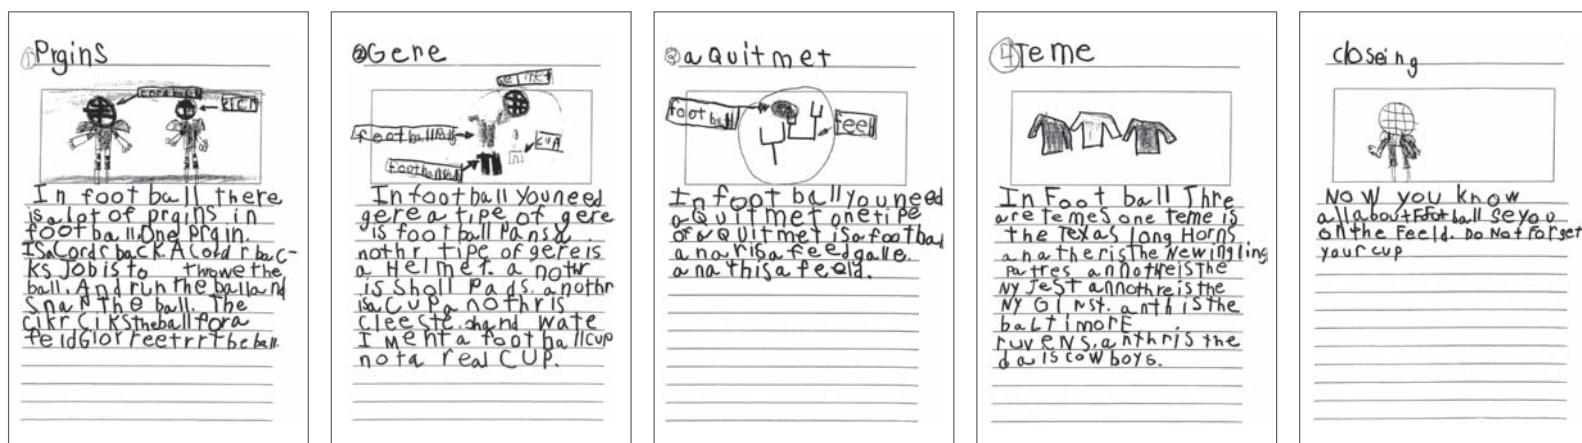 ① Prgins
cordback
kicr
In foot ball there
is a lot of prgins in
football. One prgin.
Is a Cordr back. A Cord r bac-
ks Job is to throwe the
ball. And run the ball and
snap the ball. The
cikr ciks the ball for a
feild Glor reetrrt the ball.
② Gere
foot ball Pads
cup
In football You need
gere a tipe of gere
is football Pans a
nothr tipe of gere is
a Helmet. a nothr
is Sholl Pads. a nothr
is a Cup a nothr is
cleeste. and wate
I ment a foot ball cup
not a real CUP.
③ a Quitmet
foot ball
feell
In foot ball you need
a Quitmet one tipe
of a Quitmet is a football
a nar is a feed galle.
a na this a feeld.
④ Teme
In Foot ball Thre
are temes one teme is
the Texas long Horns
a natheris the Newingling
Patres annotheis the
NY Jest annothreis the
NY Ginst. anth is the
baLtimorE
ruvens. anthris the
da is cowboys.
closeing
Now you know
all about Foot ball Se you
on the Feeld. Do Not Forget
your cup